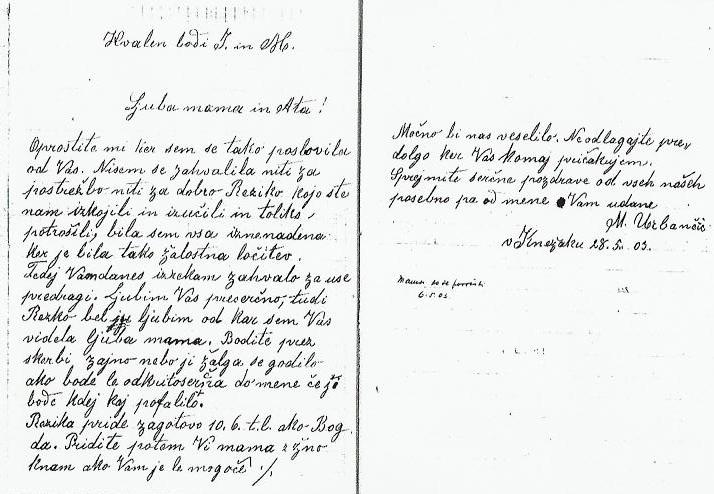 Hvalen bodi J. in M.
Ljuba mama in Ata!
Oprostite mi ker sem se tako poslovila
od Vas. Nisem se zahvalila niti za
postrežbo niti za dobro Reziko kojo ste
nam izkojili in izučili in toliko
potrošili, bila sem vsa iznenadena
ker je bila tako žalostna ločitev.
Tedej Vam danes izrekam zahvalo za use
predragi. Ljubim Vas preserčno, tudi
Rezko bel ju ljubim od kar sem Vas
videla ljuba mama. Bodite prez
skerbi zajno nebo ji žalga se godilo
ako bode le odkritoserčna do mene če ji
bode kdej kaj pofalilo.
Rezika pride zagotovo 10. 6. t. l. ako Bog
da. Pridite potem Vi mama z žno
knam ako Vam je le mogoče ./.
Močno bi nas veselilo. Ne odlagajte pre
dolgo ker Vas komaj pričakujem.
Sprejmite serčne pozdrave od vseh naših
posebno pa od mene Vam udane
M. Urbančič
v Knežaku 28. 5. 03.
6.5.03